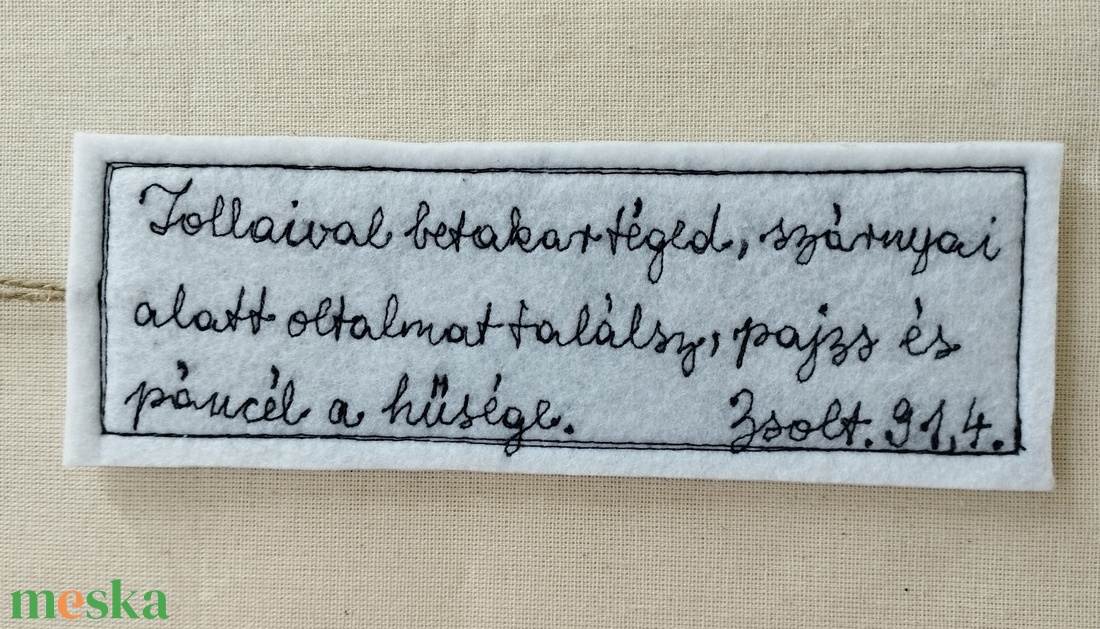 Tollaival betakar téged, szárnyai
alatt oltalmat találsz, pajzs és
páncél a hűsége. Zsolt. 91,4.
meska